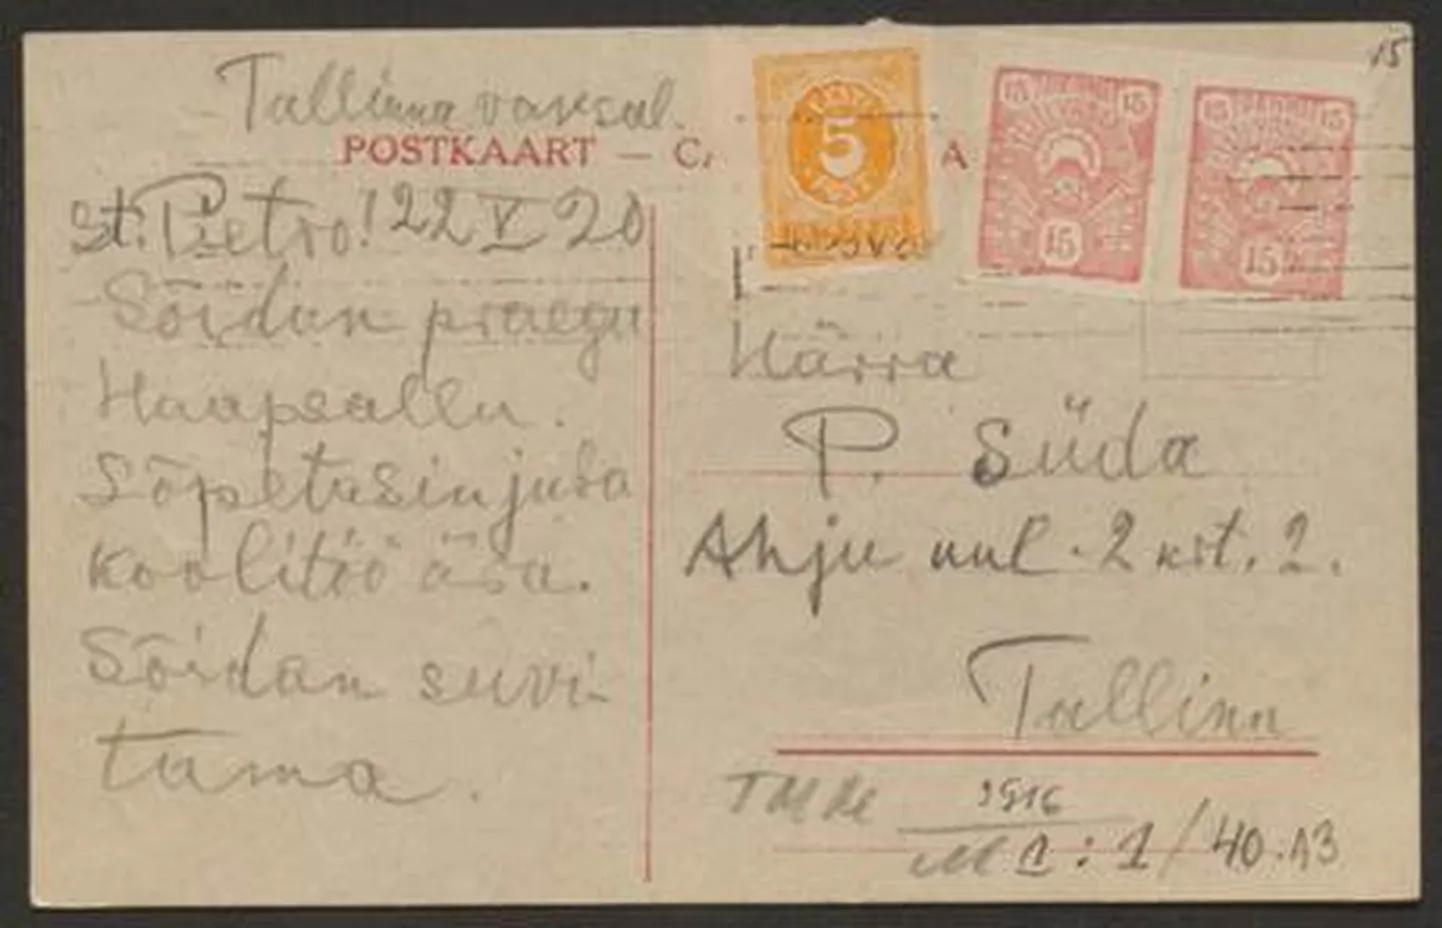 15
Tallinna vaksal.
POSTKAART — CA
A
5
15 15
15
15 15
15
St. Pietro! 22 V 20
Sõidan praegu
Haapsallu.
Sõpetasin juba
koolitöö ära.
Sõidan suvi-
tama.
Härra
P. Süda
Ahju uul. 2 krt. 2.
Tallinn
TMM 1916
M 1 : 1 / 40.13